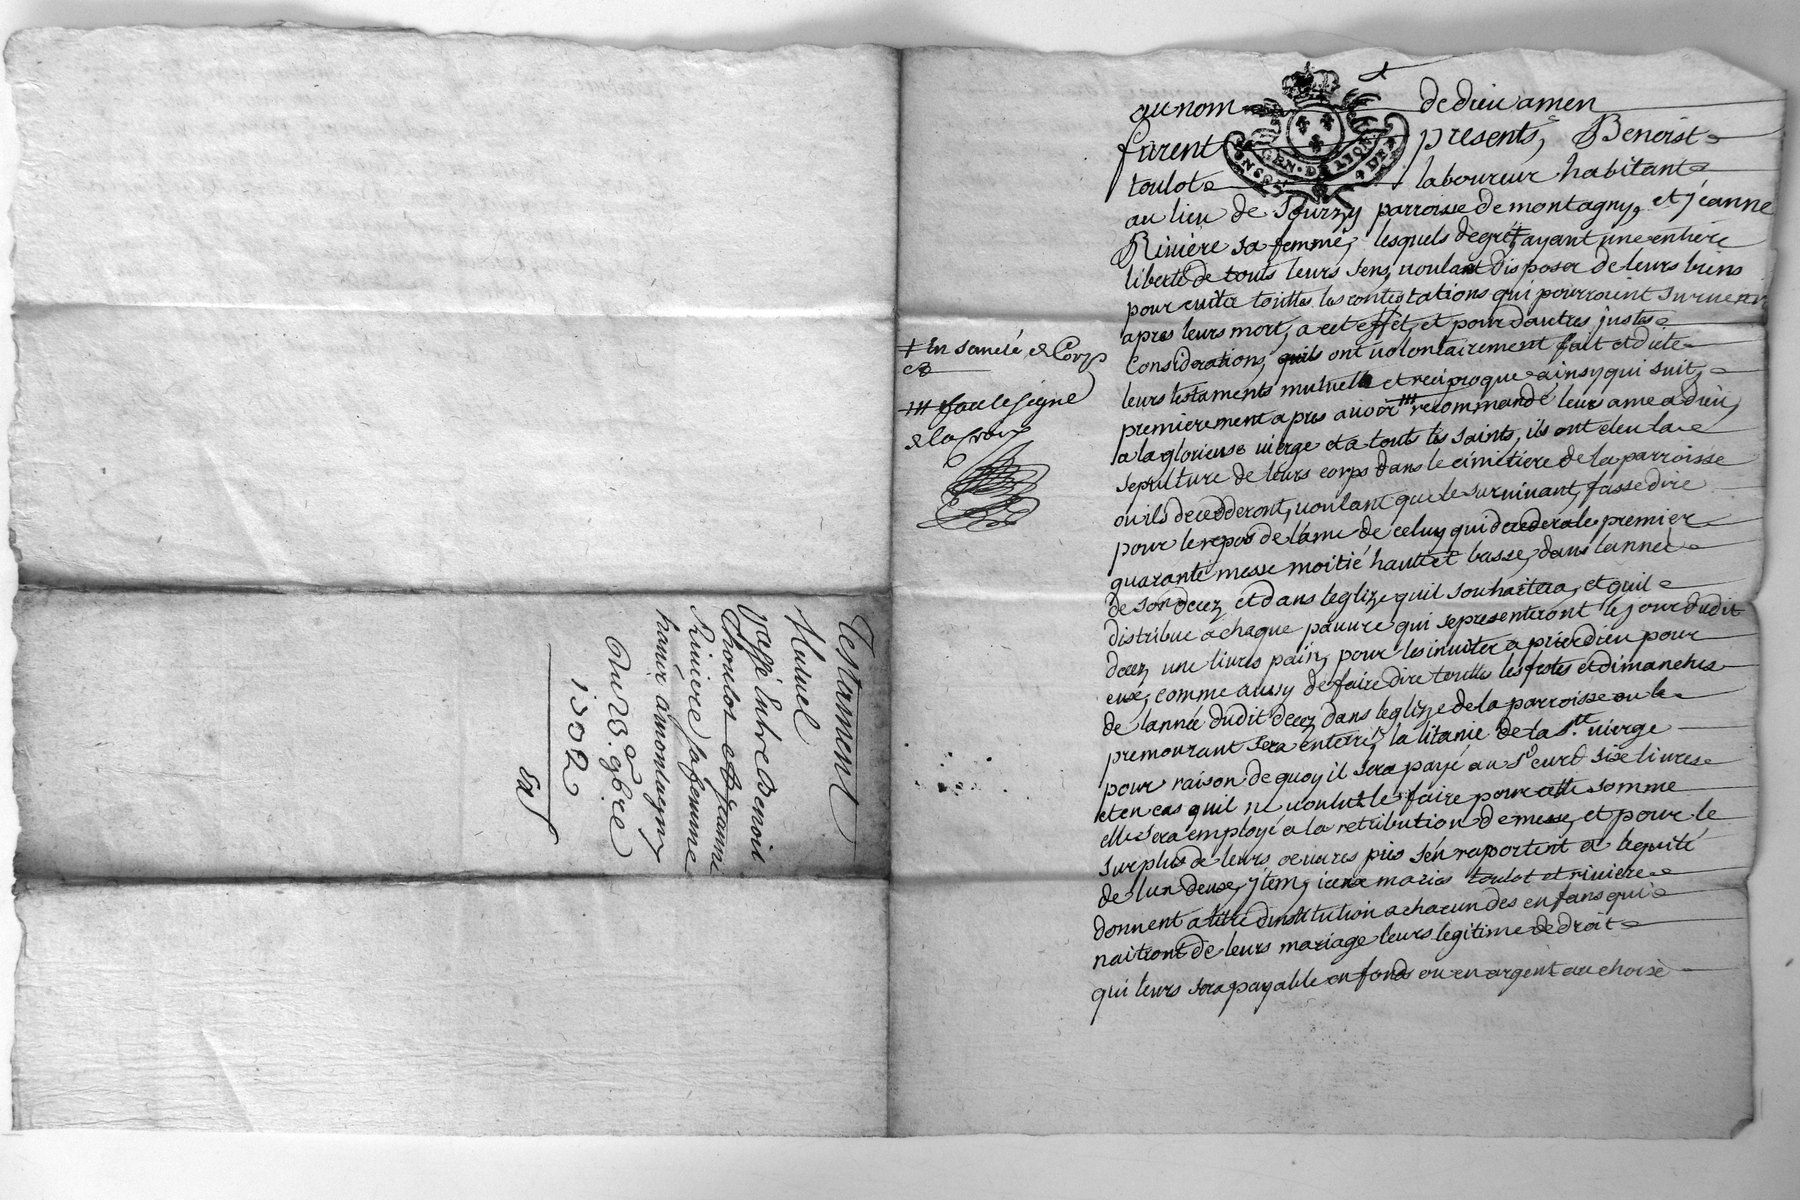 Testament
Mutuel
passé Entre Benoit
Thoulot et Jeanne
Riviere sa femme
hance a montagny
Du 23e 9bre
1702
Ex
au nom de dieu amen
furent presents, Benoist
toulot laboureur habitant
au lieu de Sourzy parroisse de montagny, et jeanne
Riviere sa femme, lesquels degré ┼ ayant une entiere
liberté de touts leurs sens, voulant disposer de leurs biens
pour eviter touttes les contestations qui pourroient survenir
apres leurs mort, a cet effet, et pour dautres justes
Considerations, quils ont volontairement fait et dicté
leurs testaments mutuels et reciproque ainsy qui suit,
premierement apres avoir /// recommandé leurs ame a dieu,
a la glorieuse vierge et a touts les saints, ils ont eleu la
sepulture de leurs corps dans le cimetiere de la parroisse
ou ils decedderont, voulant que le survivant, fasse dire
pour le repos de lame de celuy qui decedera le premier
quarante messe moitié hautte et basse, dans lannée
de son decez, et dans leglize quil souhaitera, et quil
distribue a chaque pauvre qui se presenteront le jour dudit
decez, une livres pain, pour les inviter a prier dieu pour
eux, comme aussy de faire dire touttes les festes et dimanches
de lannée dudit decez dans leglizze de la parroisse ou le
premourant sera enterré, la litanie de la Ste. vierge
pour raison de quoy il sera payé au sr curé sixe livres
et en cas quil ne voulut le faire pour cette somme
elle sera employé a la retribution de messe, et pour le
surplus de leurs oeuvres pies sen raportent a lequité
de lun deuxe, jtem, iceux mariés toulot et riviere
donnent a titre dinstitution a chacun des enfans qui
naitront de leurs mariage leurs legitime de droit
qui leurs sera payable en fonds ou en argent au choix
┼ En santé de Corps
/// fait le signe
de la Croix
GEN. DE LYON